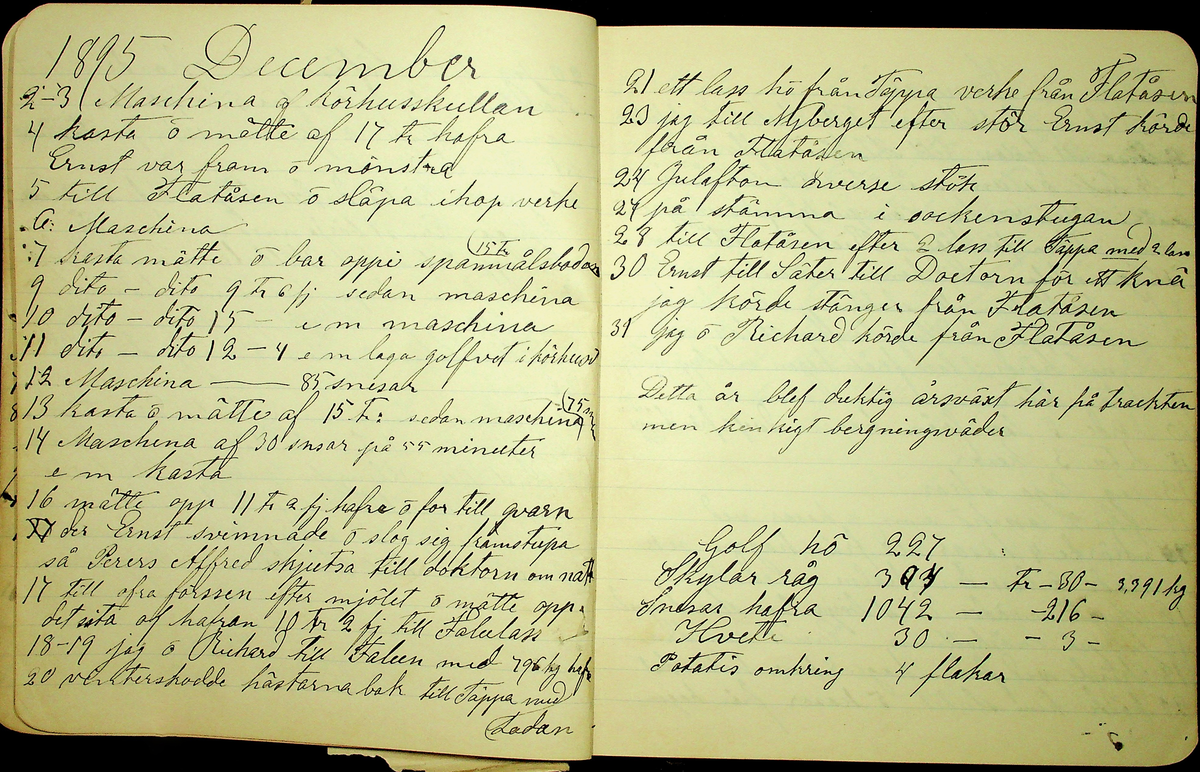 1895 December
2-3 Maschina af körhusskullan
4 kasta o mätte af 17 tr hafra
Ernst var fram o mönstra
5 till Flatåsen o släpa ihop verke
6: Maschina
7 kasta mätte o bar oppi spanmålsboden (15 tr
9 dito - dito 9 tr 6 fj sedan maschina
10 dito - dito 15 - e m maschina
11 dito - dito 12 - 4 e m laga golfvet i körhuset
12 Maschina — 85 snesar
13 kasta o mätte af 15 tr: sedan maschina (75
14 Maschena af 30 snsar på 55 minuter
e m kasta
16 mätte opp 11 tr 2 fj hafra o for till qvarn
der Ernst svimnade o slog sig framstupa
så Perers Alfred skjutsa till doktorn om natt
17 till ofra forssen efter mjölet o mätte opp
det sista af hafran 10 tr 2 fj till Falulass
18-19 jag o Richard till Falun med 796 kg hafr
20 vintterskodde hästarna bak till Täppa med
Ladan
21 ett lass hö från Täppa verke från Flatåsen
23 jag till Myberget efter stör Ernst körde
från Flatåsen
24 Julafton diverse stök
27 på stämma i sockenstugan
28 till Flatåsen efter 2 lass till Täppa med 2 lass
30 Ernst till Säter till Doctorn för ett knä
jag körde stänger från Flatåsen
31 Jag o Richard körde från Flatåsen
Detta år blef duktig årsväxt här på trackten
men kinkigt bergningsväder
Golf hö 227
Skylar råg 304 — tr - 30 - 3,391 kg
Snesar hafra 1042 — 216 -
Hvete 30 — - 3 -
Potatis omkring 4 flakar